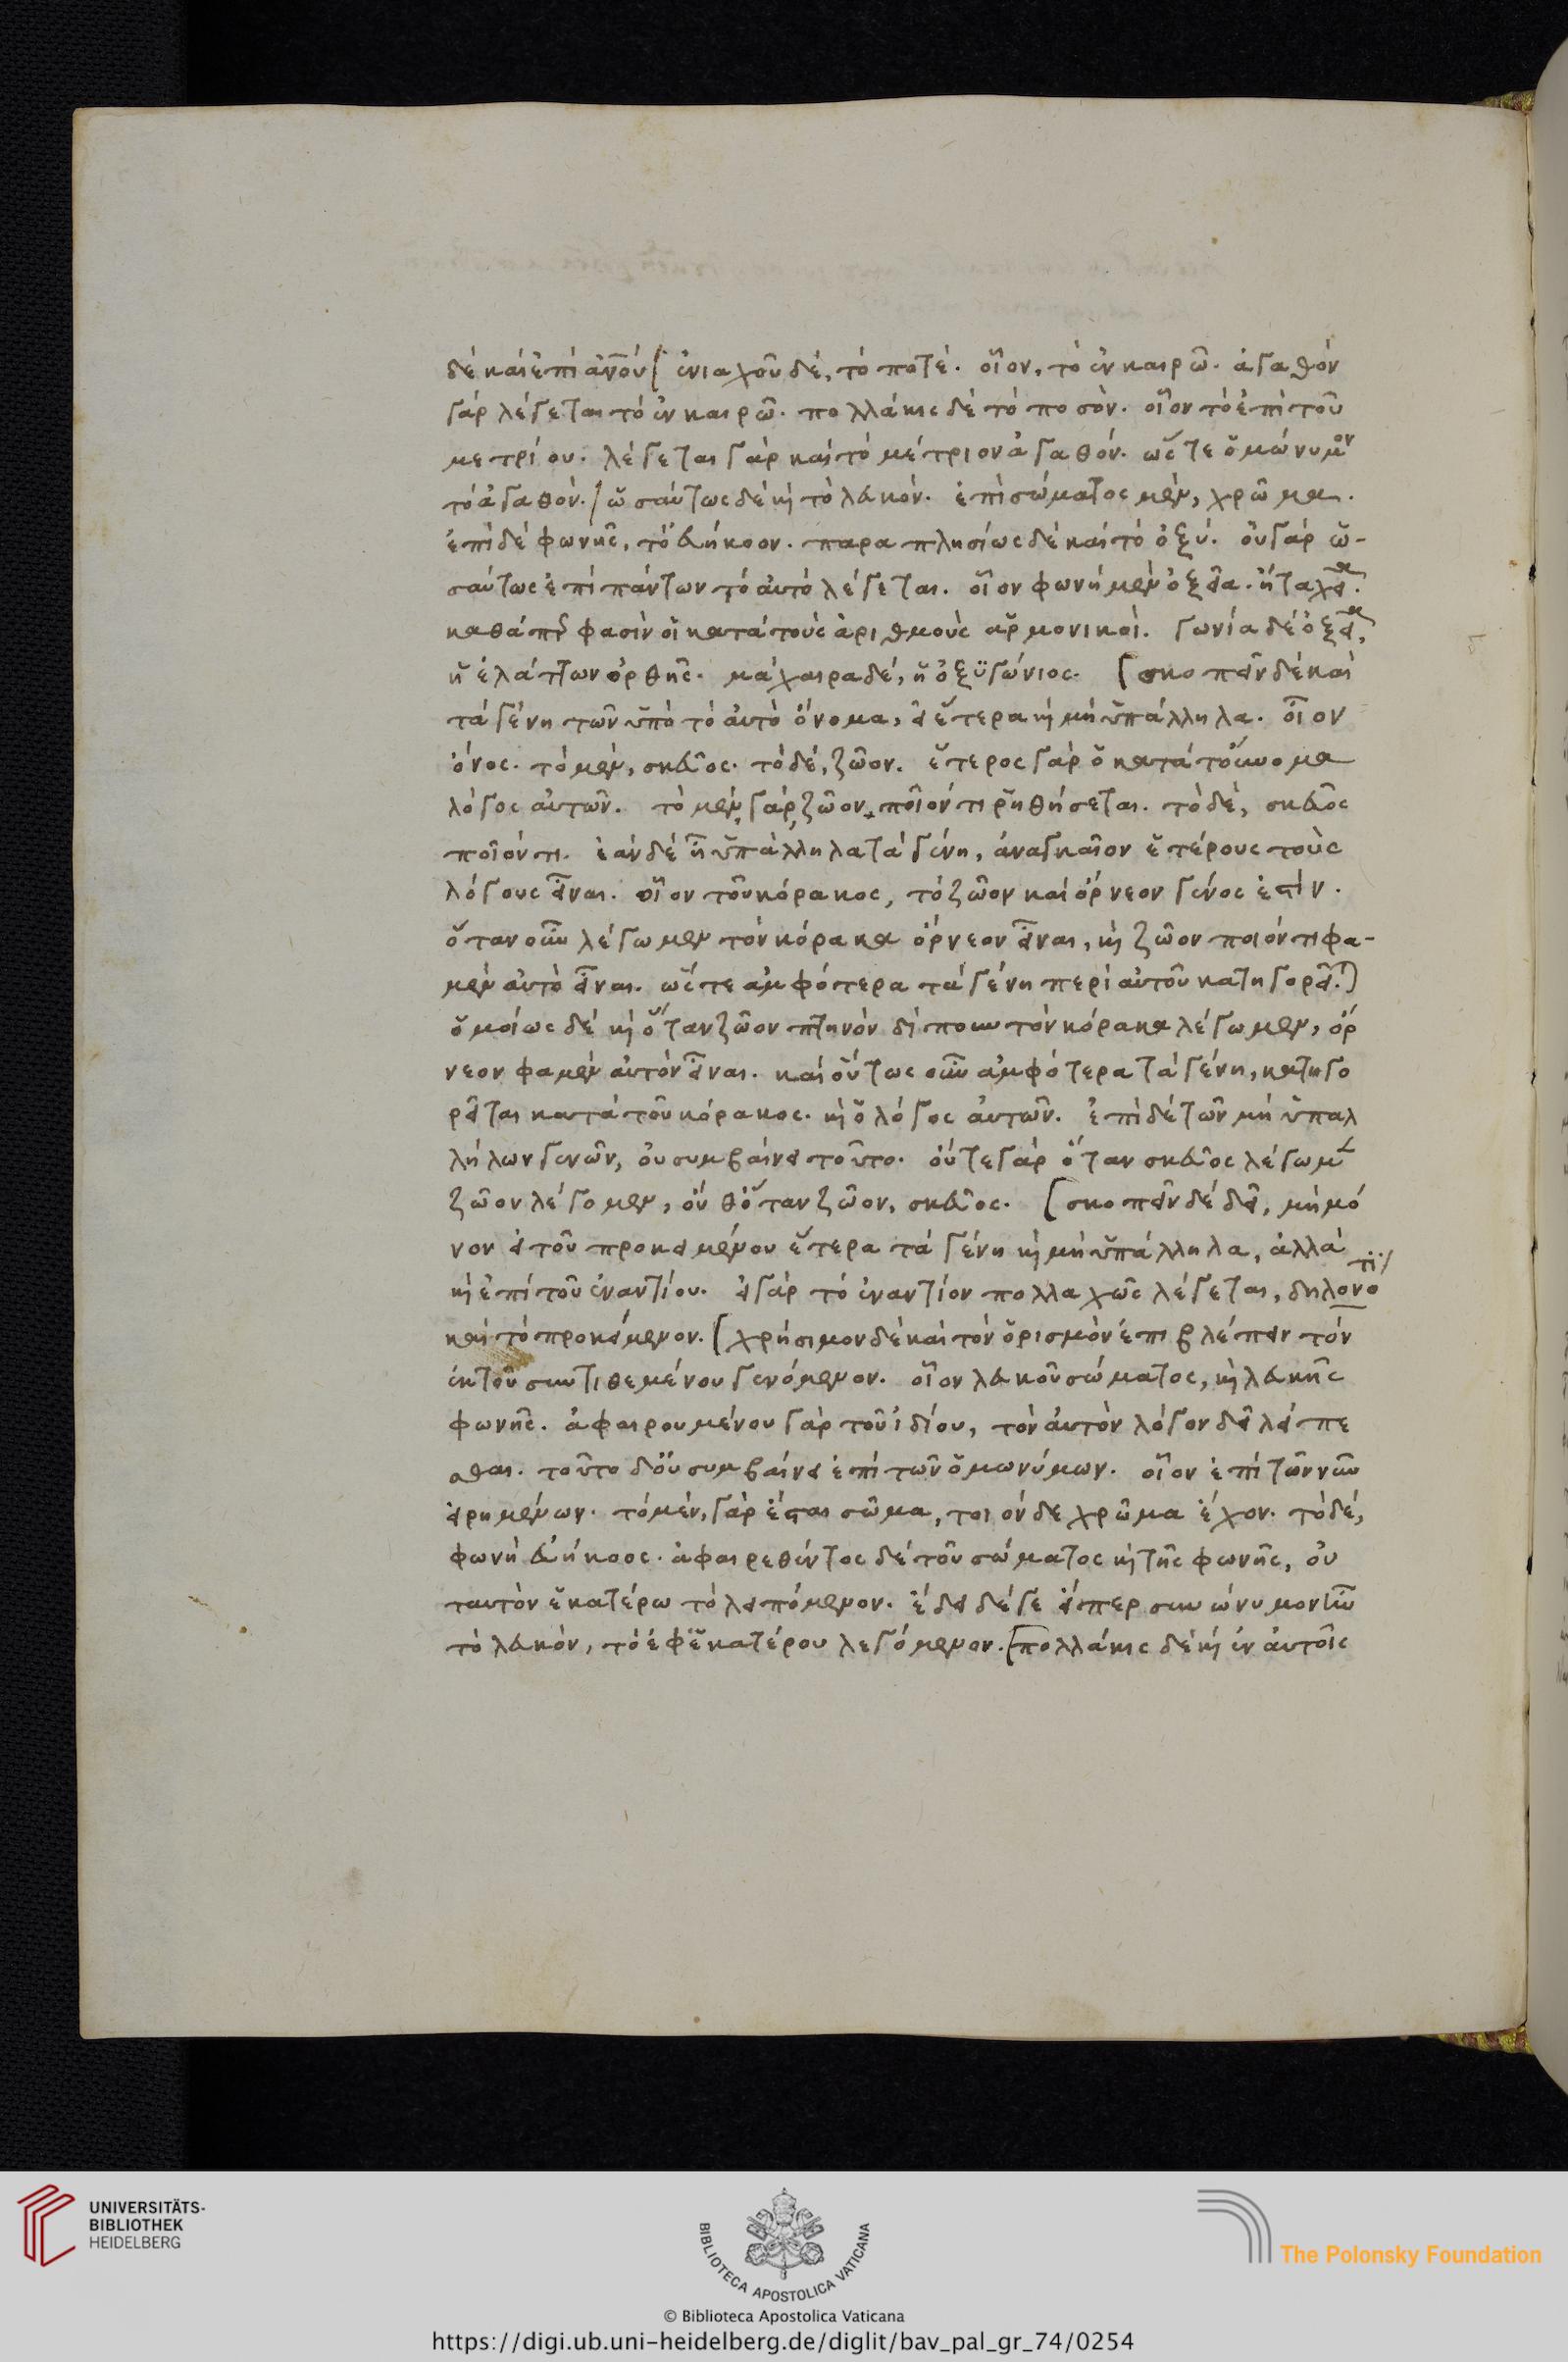 δὲ καὶ ἐπὶ ἀνου [ἐνιαχοῦ δὲ, τὸ ποτέ. οἷον, τὸ ἐν καιρῶ. ἀγαθὸν
γὰρ λέγεται τὸ ἐν καιρῶ. πολλάκις δὲ τὸ ποσόν. οἷον τὸ ἐπὶ τοῦ
μετρίου. λέγεται γὰρ καὶ τὸ μέτριον ἀγαθόν. ὥςτε ὁμώνυμον
τὸ ἀγαθόν. / ὡσαύτως δὲ κὶ τὸ λευκόν. ἐπὶ σώματος μὲν, χρῶμα.
ἐπὶ δὲ φωνῆς, τὸ εὐήκοον. παραπλησίως δὲ καὶ τὸ ὀξύ. οὐ γὰρ ὡ-
σαύτως ἐπὶ πάντων τὸ αὐτὸ λέγεται. οἷον φωνὴ μὲν ὀξεῖα. ἡ ταχεῖα.
καθάπερ φασὶν οἱ κατὰ τοὺς ἀριθμοὺς ἁρμονικοί. γωνία δὲ ὀξεῖα,
ἡ ἐλάττων ὀρθῆς. μάχαιρα δὲ, ἡ ὀξϋγώνιος. [σκοπεῖν δὲ καὶ
τὰ γένη τῶν ὑπὸ τὸ αὐτὸ ὄνομα, εἰ ἕτερα κὶ μὴ ὑπάλληλα. οἷον
ὄνος. τὸ μὲν, σκεῦος. τὸ δὲ, ζῶον. ἕτερος γὰρ ὁ κατὰ τοὔνομα
λόγος αὐτῶν. τὸ μὲν, γὰρ, ζῶον, ποῖόν τι ῥηθήσεται. τὸ δὲ, σκεῦος
ποῖόν τι. ἐὰν δὲ ἦ ὑπάλληλα τὰ γένη, ἀναγκαῖον ἑτέρους τοὺς
λόγους εἶναι. οἷον τοῦ κόρακος, τὸ ζῶον καὶ ὄρνεον γένος ἐστίν.
ὅταν οὖν λέγωμεν τὸν κόρακα ὄρνεον εἶναι, κὶ ζῶον ποιόν τι φα-
μὲν αὐτὸ εἶναι. ὥςτε ἀμφότερα τὰ γένη περὶ αὐτοῦ κατηγορεῖ.)
ὁμοίως δὲ κὶ ὅταν ζῶον πτηνὸν δίπουν τὸν κόρακα λέγωμεν, ὄρ
νεον φαμὲν αὐτὸν εἶναι. καὶ οὕτως οὖν ἀμφότερα τὰ γένη, κατηγο
ρεῖται κατὰ τοῦ κόρακος. κὶ ὁ λόγος αὐτῶν. ἐπὶ δὲ τῶν μὴ ὑπαλ
λήλων γενῶν, οὐ συμβαίνει τοῦτο. οὔτε γὰρ ὅταν σκεῦος λέγωμεν
ζῶον λέγομεν, οὔθ' ὅταν ζῶον, σκεῦος. [σκοπεῖν δὲ δεῖ, μὴ μό
νον εἰ τοῦ προκειμένου ἕτερα τὰ γένη κὶ μὴ ὑπάλληλα, ἀλλὰ
κὶ ἐπὶ τοῦ ἐναντίου. εἰ γὰρ τὸ ἐναντίον πολλαχῶς λέγεται, δηλονότι·/
καὶ τὸ προκείμενον. [χρήσιμον δὲ καὶ τὸν ὁρισμὸν ἐπιβλέπειν τὸν
ἐκ τοῦ συντιθεμένου γενόμενον. οἷον λευκοῦ σώματος, κὶ λευκῆς
φωνῆς. ἀφαιρουμένου γὰρ τοῦ ἰδίου, τὸν αὐτὸν λόγον δεῖ λείπε
σθαι. τοῦτο δ' οὐ συμβαίνει ἐπὶ τῶν ὁμωνύμων. οἷον ἐπὶ τῶν νῦν
εἰρημένων. τὸ μὲν, γὰρ ἔσται σῶμα, τοιόνδε χρῶμα ἔχον. τὸ δὲ,
φωνὴ εὐήκοος. ἀφαιρεθέντος δὲ τοῦ σώματος κὶ τῆς φωνῆς, οὐ
ταυτὸν ἑκατέρω τὸ λειπόμενον. ἔδει δέ γε εἴπερ συνώνυμον ἦν
τὸ λευκὸν, τὸ ἐφ' ἑκατέρου λεγόμενον. [πολλάκις δὲ κὶ ἐν αὐτοῖς
UNIVERSITÄTS-
BIBLIOTHEK
HEIDELBERG
BIBLIOTECA APOSTOLICA VATICANA
The Polonsky Foundation
© Biblioteca Apostolica Vaticana
https://digi.ub.uni-heidelberg.de/diglit/bav_pal_gr_74/0254